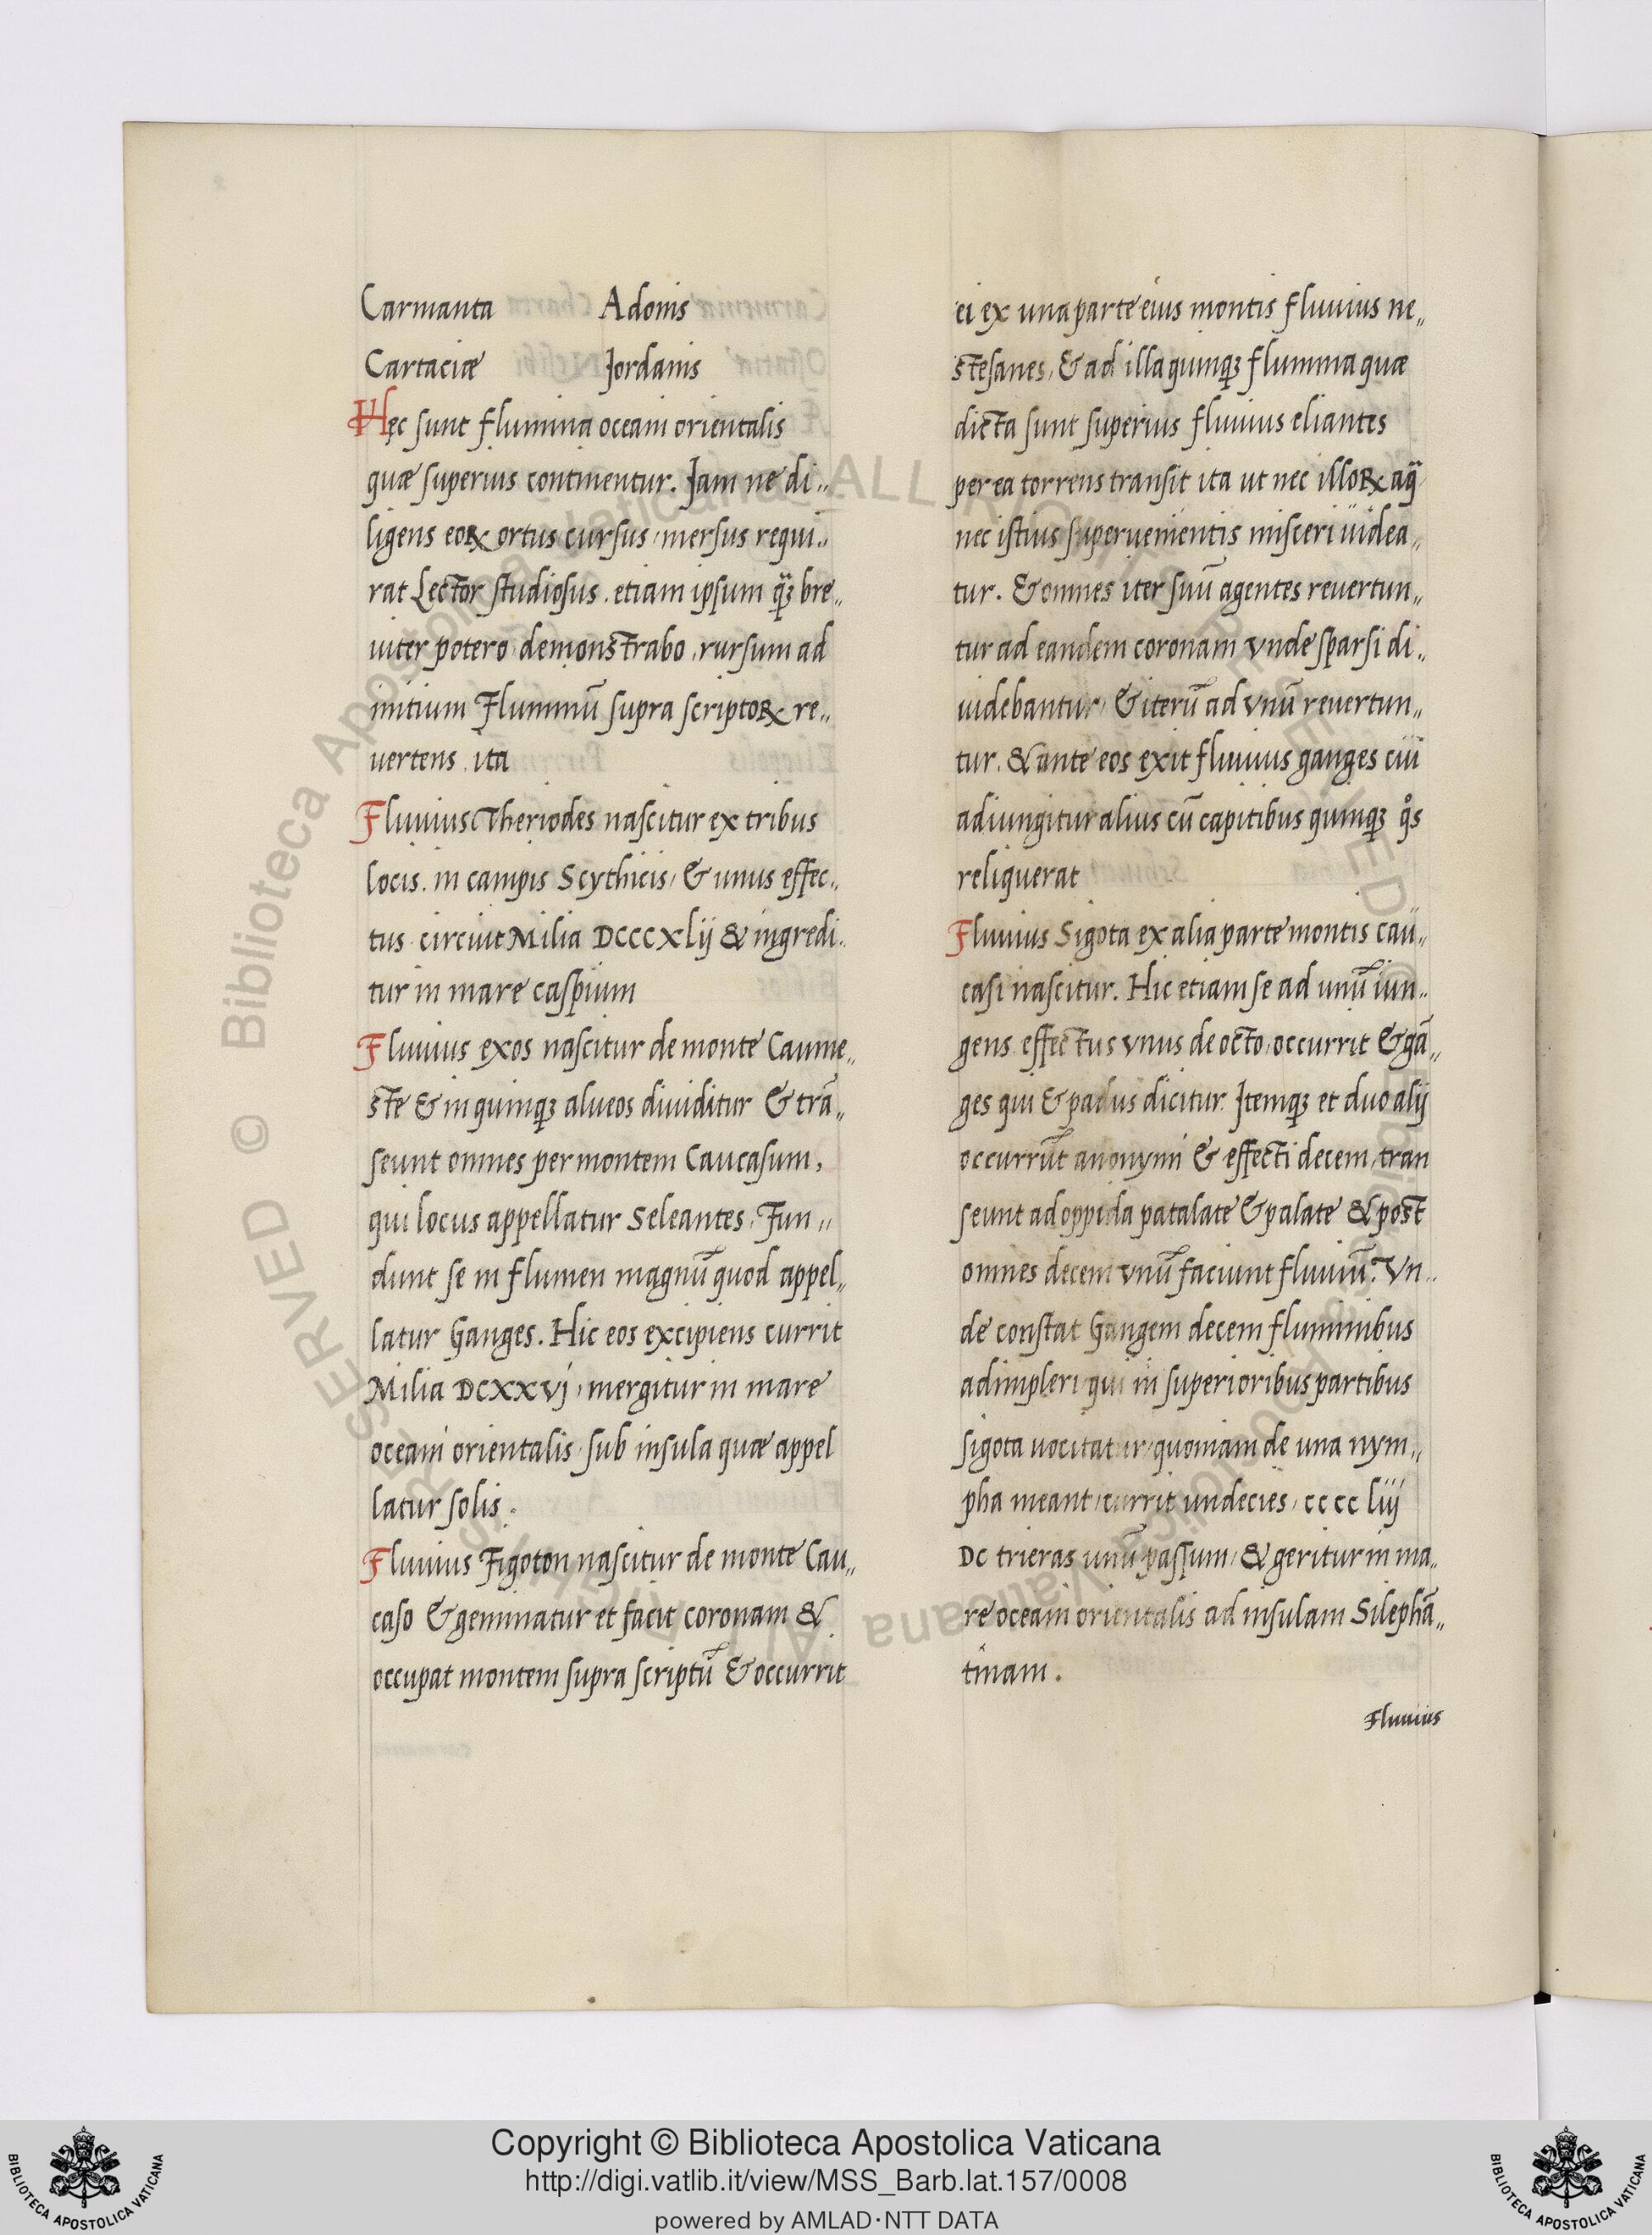 Carmanta Adonis
Cartaciæ Jordanis
Hęc sunt flumina oceani orientalis
quæ superius continentur. Jam ne di„
ligens eoꝝ ortus cursus, mersus requi„
rat Lector studiosus. etiam ipsum bre„
uiter potero demonstrabo, rursum ad
initium Fluminū supra scriptoꝝ re„
uertens. ita
Fluuius Theriodes nascitur ex tribus
locis. in campis Scythicis, & unus effec„
tus circuit Milia DCCCXLij & ingredi„
tur in mare caspium
Fluuius exos nascitur de monte Caume„
ste & in quinqꝫ alueos diuiditur & trā„
seunt omnes per montem Caucasum,
qui locus appellatur Seleantes. Fun„
dunt se in flumen magnū quod appel„
latur Ganges. Hic eos excipiens currit
Milia DCXXVj, mergitur in mare
oceani orientalis, sub insula quæ appel
latur solis.
Fluuius Figoton nascitur de monte Cau„
caso & geminatur et facit coronam &
occupat montem supra scriptū & occurrit
ei ex una parte eius montis fluuius ne„
stesanes, & ad illa quinqꝫ flumina quæ
dicta sunt superius fluuius eliantes
per ea torrens transit ita ut nec illoꝝ aq̄
nec istius superuenientis misceri uidea„
tur. & omnes iter suū agentes reuertun„
tur ad eandem coronam vnde sparsi di„
uidebantur, & iterū ad vnū reuertun„
tur. & ante eos exit fluuius ganges cui
adiungitur alius cū capitibus quinqꝫ q̊s
reliquerat
Fluuius Sigota ex alia parte montis cau„
casi nascitur. Hic etiam se ad unū iun„
gens effectus vnus de octo, occurrit & gā„
ges qui & padus dicitur. Itemqꝫ et duo alij
occurrūt anonymi & effecti decem, tran
seunt ad oppida patalate & palate & post
omnes decem vnū faciunt fluuiū. Vn„
de constat Gangem decem fluminibus
adimpleri qui in superioribus partibus
sigota uocitatur, quoniam de una nym„
pha meant, currit undecies, cccc liij
DC trieras unū passum, & geritur in ma„
re oceani orientalis ad insulam Silephā„
tinam.
Fluuius
Copyright © Biblioteca Apostolica Vaticana
http://digi.vatlib.it/view/MSS_Barb.lat.157/0008
powered by AMLAD·NTT DATA
BIBLIOTECA APOSTOLICA VATICANA
BIBLIOTECA APOSTOLICA VATICANA